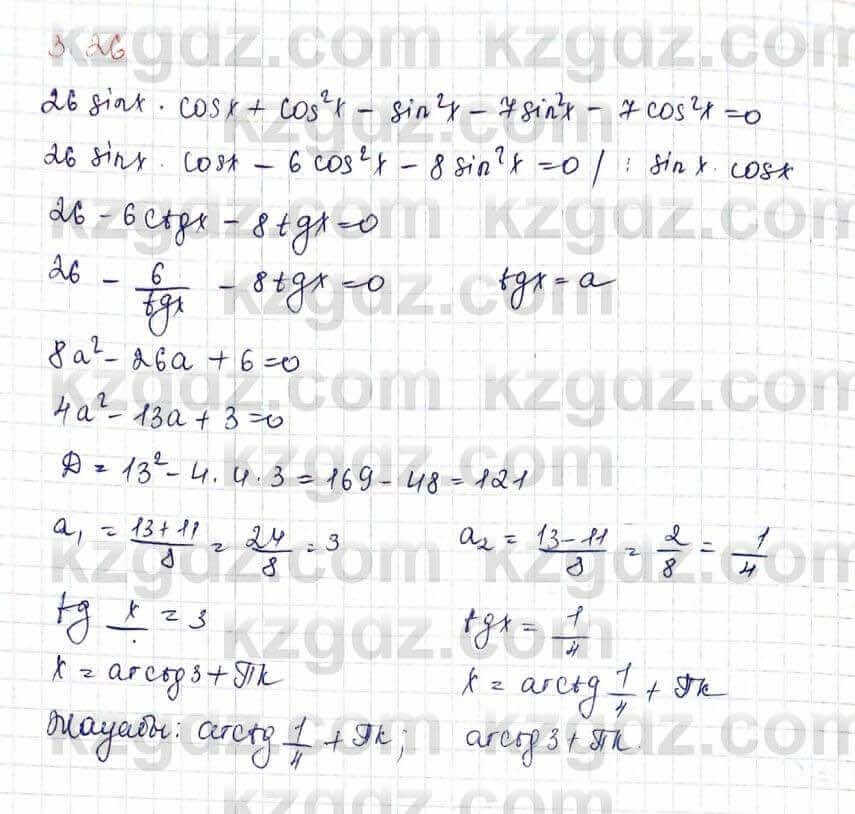 3.26
26 sinx · cosx + cos²x - sin²x - 7sin²x - 7cos²x = 0
26 sinx · cosx - 6cos²x - 8sin²x = 0 / : sinx · cosx
26 - 6ctgx - 8tgx = 0
26 - 6/tgx - 8tgx = 0 tgx = a
8a² - 26a + 6 = 0
4a² - 13a + 3 = 0
D = 13² - 4 · 4 · 3 = 169 - 48 = 121
a₁ = (13+11)/8 = 24/8 = 3 a₂ = (13-11)/8 = 2/8 = 1/4
tg x = 3 tgx = 1/4
x = arctg3 + πk x = arctg 1/4 + πk
Жауабы: arctg 1/4 + πk; arctg3 + πk.
kzgdz.com kzgdz.com
kzgdz.com
kzgdz.com kzgdz.com
kzgdz.com
kzgdz.com kzgdz.com
kzgdz.com
kzgdz.com kzgdz.com
kzgdz.com
kzgdz.com kzgdz.com
kzgdz.com